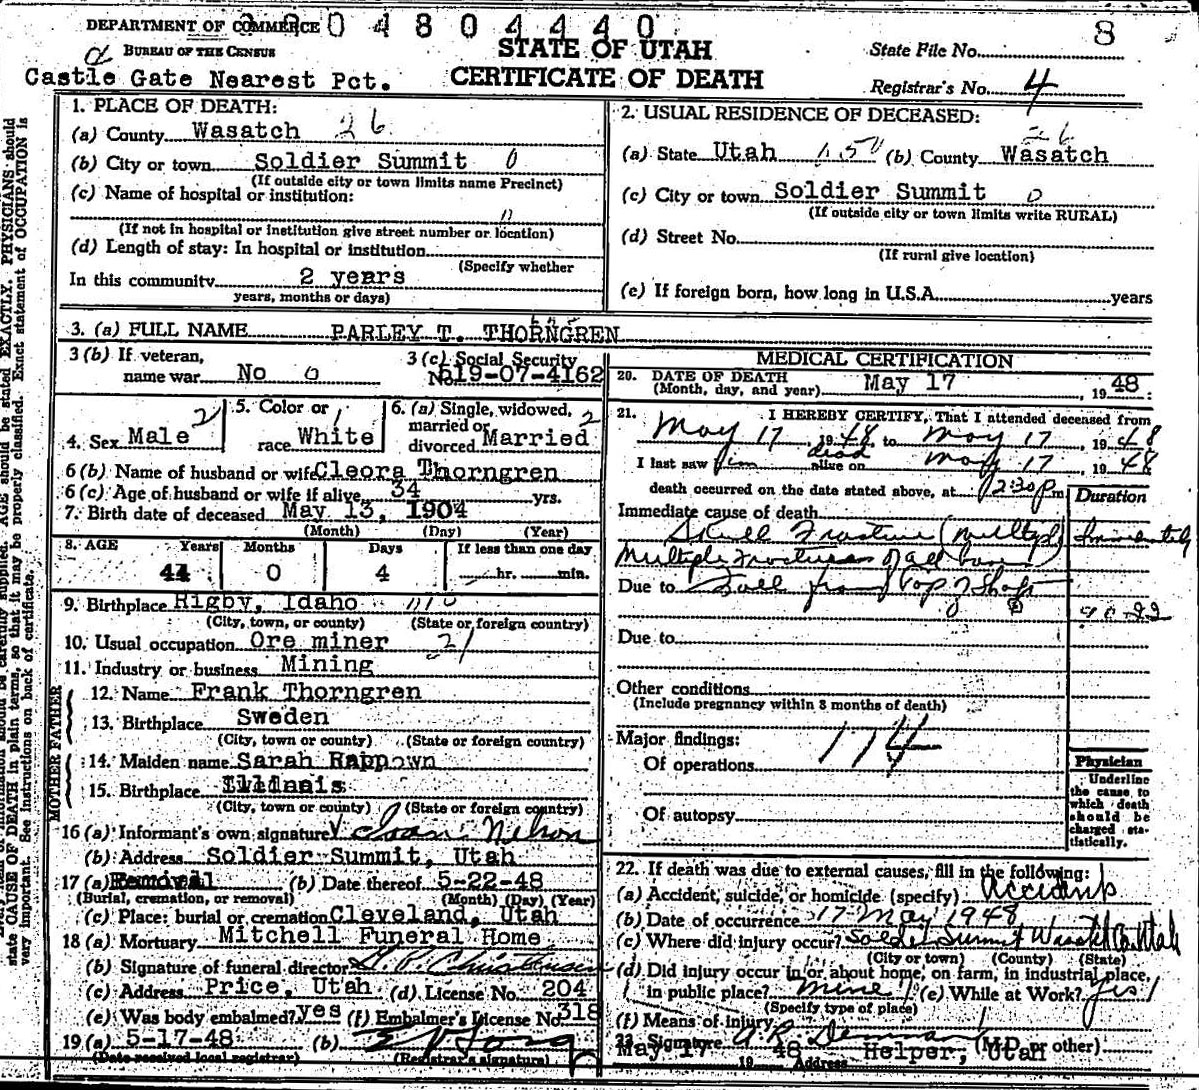 DEPARTMENT OF COMMERCE 004804440
BUREAU OF THE CENSUS
STATE OF UTAH
CERTIFICATE OF DEATH
State File No. 8
Registrar's No. 4
Castle Gate Nearest Pct.
1. PLACE OF DEATH:
(a) County Wasatch 26
(b) City or town Soldier Summit 0
(If outside city or town limits name Precinct)
(c) Name of hospital or institution:
(If not in hospital or institution give street number or location)
(d) Length of stay: In hospital or institution
(Specify whether
In this community 2 years
years, months or days)
2. USUAL RESIDENCE OF DECEASED:
26
(a) State Utah 150 (b) County Wasatch
(c) City or town Soldier Summit 0
(If outside city or town limits write RURAL)
(d) Street No.
(If rural give location)
(e) If foreign born, how long in U.S.A. years
3. (a) FULL NAME PARLEY T. THORNGREN
3 (b) If veteran,
name war No 0
3 (c) Social Security
No. 519-07-4162
4. Sex Male 2
5. Color or
race White 1
6. (a) Single, widowed, 2
married or
divorced Married
6 (b) Name of husband or wife Cleora Thorngren
6 (c) Age of husband or wife if alive 34 yrs.
7. Birth date of deceased May 13, 1904
(Month) (Day) (Year)
8. AGE Years Months Days If less than one day
44 0 4 hr. min.
9. Birthplace Rigby, Idaho
(City, town, or county) (State or foreign country)
10. Usual occupation Ore miner 21
11. Industry or business Mining
FATHER
12. Name Frank Thorngren
13. Birthplace Sweden
(City, town or county) (State or foreign country)
MOTHER
14. Maiden name Sarah Rappown
15. Birthplace Illinois
(City, town or county) (State or foreign country)
16 (a) Informant's own signature Nelson
(b) Address Soldier Summit, Utah
17 (a) Removal (b) Date thereof 5-22-48
(Burial, cremation, or removal) (Month) (Day) (Year)
(c) Place: burial or cremation Cleveland, Utah
18 (a) Mortuary Mitchell Funeral Home
(b) Signature of funeral director
(c) Address Price, Utah (d) License No. 204
(e) Was body embalmed? yes (f) Embalmer's License No. 318
19 (a) 5-17-48 (b)
(Date received local registrar) (Registrar's signature)
MEDICAL CERTIFICATION
20. DATE OF DEATH
(Month, day, and year) May 17 1948
21. I HEREBY CERTIFY, That I attended deceased from
May 17, 1948, to May 17, 1948
I last saw him dead alive on May 17 1948
death occurred on the date stated above, at 12:30 p m
Duration
Immediate cause of death
Skull Fracture (multiple) Immediately
Multiple Fractures of all bones
Due to Fall from top of Shaft
Due to
Other conditions
(Include pregnancy within 3 months of death)
Major findings: 174
Of operations
Of autopsy
Physician
Underline
the cause to
which death
should be
charged sta-
tistically.
22. If death was due to external causes, fill in the following:
(a) Accident, suicide, or homicide (specify) Accident
(b) Date of occurrence 17 May 1948
(c) Where did injury occur? Soldier Summit Wasatch Co. Utah
(City or town) (County) (State)
(d) Did injury occur in or about home, on farm, in industrial place,
in public place? mine (e) While at Work? Yes
(Specify type of place)
(f) Means of injury
23. Signature (M.D. or other)
May 17 1948 Address Helper, Utah